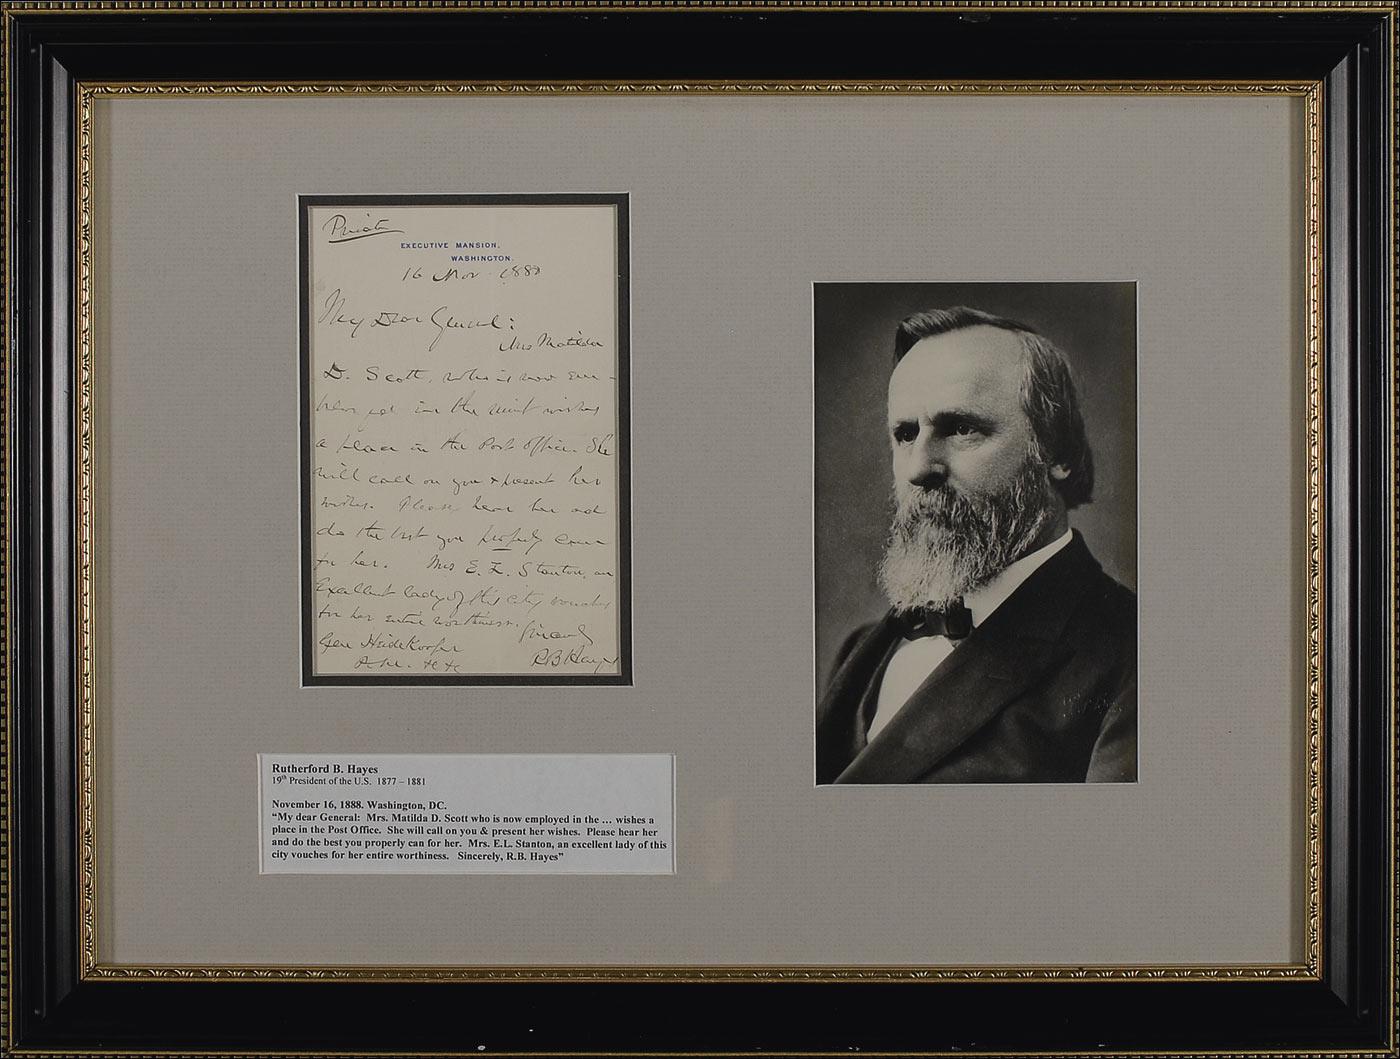 Private
EXECUTIVE MANSION,
WASHINGTON.
16 Nov. 1880
My Dear General:
Mrs Matilda
D. Scott, who is now em-
ployed in the mint wishes
a place in the Post Office. She
will call on you & present her
wishes. Please hear her and
do the best you properly can
for her. Mrs E. L. Stanton, an
Excellent lady of this city vouches
for her entire worthiness.
Sincerely
Gen Heidekooper
R B Hayes
Rutherford B. Hayes
19th President of the U.S. 1877 – 1881
November 16, 1888. Washington, DC.
“My dear General: Mrs. Matilda D. Scott who is now employed in the ... wishes a
place in the Post Office. She will call on you & present her wishes. Please hear her
and do the best you properly can for her. Mrs. E.L. Stanton, an excellent lady of this
city vouches for her entire worthiness. Sincerely, R.B. Hayes”